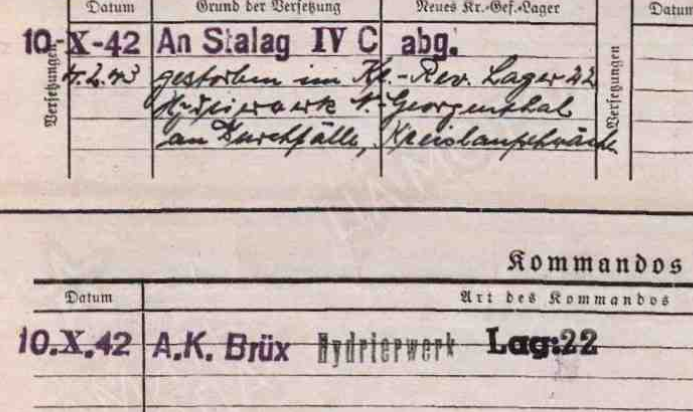 Datum Grund der Versetzung Neues Kr.-Gef.-Lager Datum
10-X-42 An Stalag IV C abg.
4.2.43 gestorben im Kr.-Rev. Lager 22
Hydrierwerk St. Georgenthal
an Durchfälle, Kreislaufschwäche
Versetzungen
Versetzungen
Kommandos
Datum Art des Kommandos
10.X.42 A.K. Brüx Hydrierwerk Lag:22